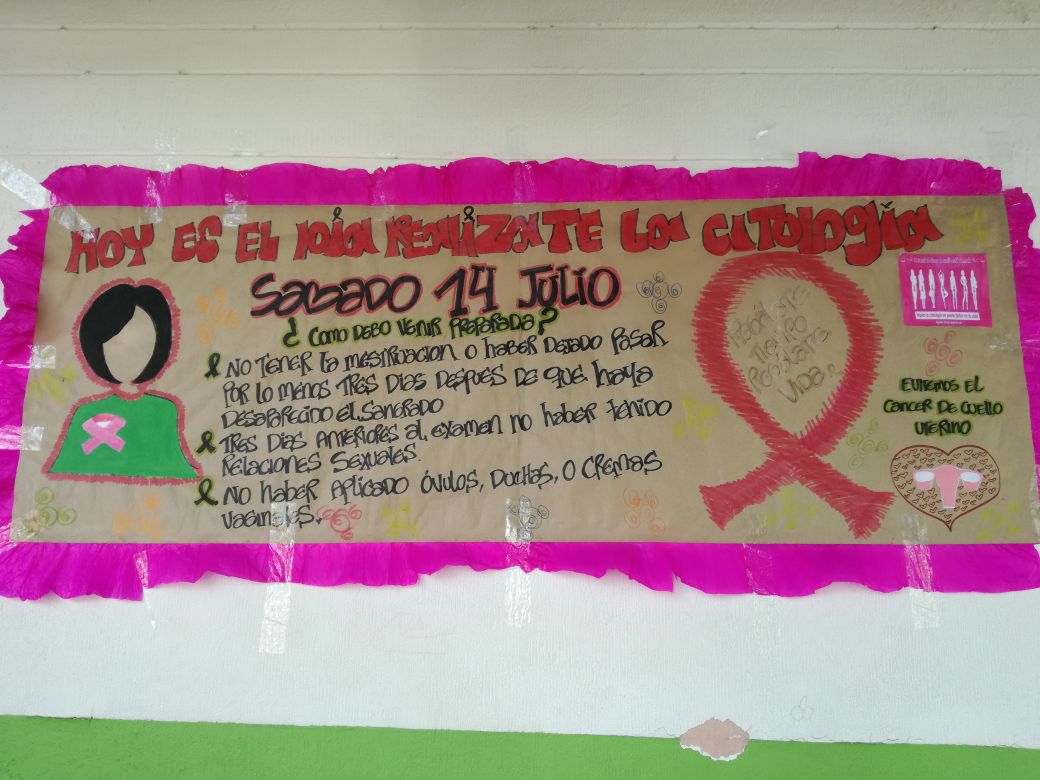 HOY ES EL DIA REALIZATE LA CITOLOGÍA
SABADO 14 JULIO
¿COMO DEBO VENIR PREPARADA?
NO TENER LA MESTRUACION O HABER DEJADO PASAR
POR LO MENOS TRES DIAS DESPUES DE QUE HAYA
DESAPARECIDO EL SANGRADO
TRES DIAS ANTERIORES AL EXAMEN NO HABER TENIDO
RELACIONES SEXUALES.
NO HABER APLICADO ÓVULOS, DUCHAS, O CREMAS
VAGINALES.
TIEMPO
VIDA
EVITEMOS EL
CANCER DE CUELLO
UTERINO